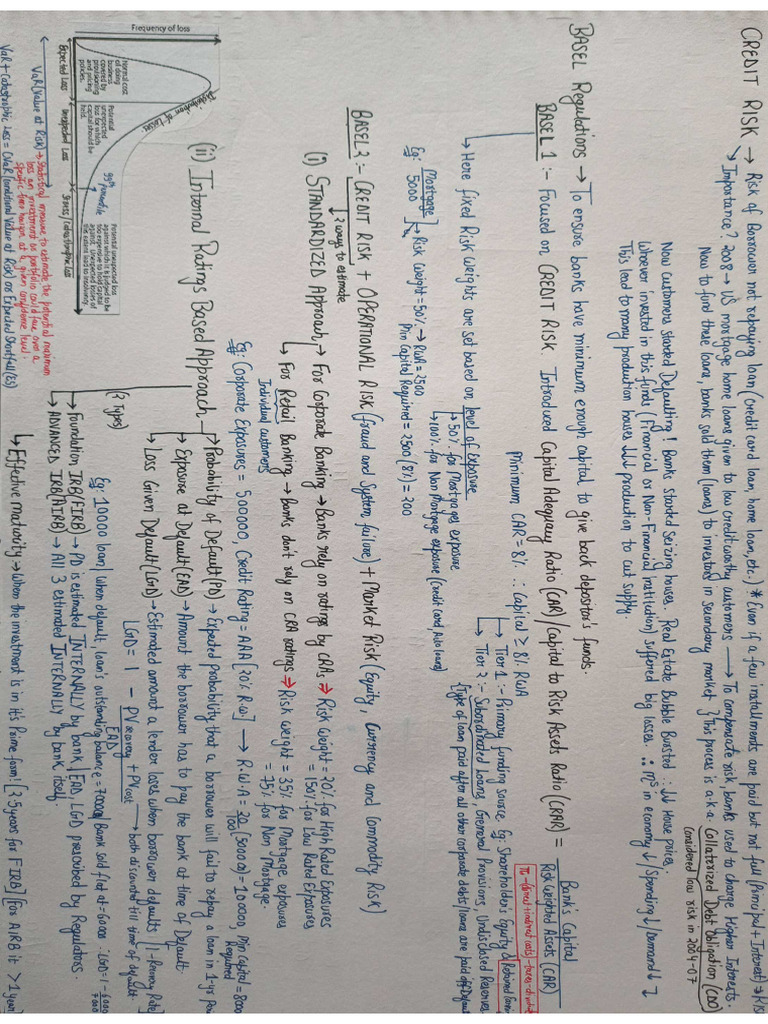 CREDIT RISK → Risk of Borrower not repaying loan (credit card loan, home loan, etc.) * Even if a few installments are paid but not full (Principal + Interest) ⇒
↘ Importance? 2008 → US mortgage home loans given to low creditworthy customers → To compensate risk, banks used to charge Higher Interests.
Now to fund these loans, banks sold them (loans) to investors in secondary market. } This process is a.k.a. Collaterized Debt Obligation (CDO)
Considered low risk in 2004-07
Now customers started Defaulting! Banks started seizing houses. Real Estate Bubble Bursted ∴ ↓↓ House prices.
Whoever invested in this funds (Financial or Non-Financial Institution) suffered big losses. ∴ mS in economy ↓ / Spending ↓ / Demand ↓ ↴
This lead to many production houses ↓↓ production to cut supply.
BASEL Regulations → To ensure banks have minimum enough capital to give back depositor's funds.
BASEL 1 :- Focused on CREDIT RISK. Introduced Capital Adequacy Ratio (CAR) / Capital to Risk Assets Ratio (CRAR) = Bank's Capital
Risk Weighted Assets (CAR)
Minimum CAR = 8% ∴ Capital ≥ 8% RWA
↳ Tier 1 :- Primary funding source Eg: Shareholder's Equity &
↳ Tier 2 :- Subordinated Loans, General Provisions, Undisclosed Reserves
{Type of loan paid after all other corporate debts/loans are paid off
↳ Here fixed Risk Weights are set based on level of exposure
↳ 50% for Mortgages exposure
↳ 100% for Non Mortgage exposure (Credit Card, Auto loans)
Eg: Mortgage 5000 ↳ Risk Weight = 50% → RWA = 2500
Min Capital Required = 2500 (8%) = 200
BASEL 2 :- CREDIT RISK + OPERATIONAL RISK (Fraud and System failure) + Market Risk (Equity, Currency and Commodity Risk)
2 ways to estimate
(i) STANDARDIZED Approach → For Corporate Banking → Banks rely on ratings by CRAs ⇒ Risk Weight = 20% for High Rated Exposures
= 150% for Low Rated Exposures
↳ For Retail Banking → Banks don't rely on CRA ratings ⇒ Risk weight = 35% for Mortgage exposures
Individual customers
= 75% for Non Mortgage
Eg: Corporate Exposures = 500000, Credit Rating = AAA [20% R.W] → R.W.A = 20/100 (500000) = 100000, Min Capital Required = 8000
(ii) Internal Ratings Based Approach
↳ Probability of Default (PD) → Expected probability that a borrower will fail to repay a loan in 1-yr
↳ Exposure at Default (EAD) → Amount the borrower has to pay the bank at time of Default
↳ Loss Given Default (LGD) → Estimated amount a lender loses when borrower defaults (1 - Recovery Rate)
LGD = 1 - PV recovery + PV cost → both discounted till time of default
EAD
Eg: 10000 loan, when default, loan's outstanding balance = 7000, Bank sold flat at 6000 ∴ LGD = 1 - 6000/7000
(2 Types)
↳ Foundation IRB (FIRB) → PD is estimated INTERNALLY by bank / EAD, LGD prescribed by Regulators.
↳ ADVANCED IRB (AIRB) → All 3 estimated INTERNALLY by bank itself
↳ Effective Maturity → When the investment is in it's Prime form! [2.5 years for FIRB] [for AIRB it >1 year
Frequency of loss
Distribution of Losses
Normal cost of doing business covered by provisioning and pricing policies.
Potential unexpected loss for which capital should be held.
99th Percentile
Potential unexpected loss against which it is judged to be too expensive to hold capital against. Unexpected losses of this extent lead to insolvency.
Expected Loss
Unexpected Loss
Stress/Catastrophic Loss
VaR (Value at Risk) → Statistical measure to estimate the potential maximum
loss an investment or portfolio could face over a
specific time horizon at a given confidence level.
VaR + Catastrophic Loss = CVaR (Conditional Value at Risk) or Expected Shortfall (ES)